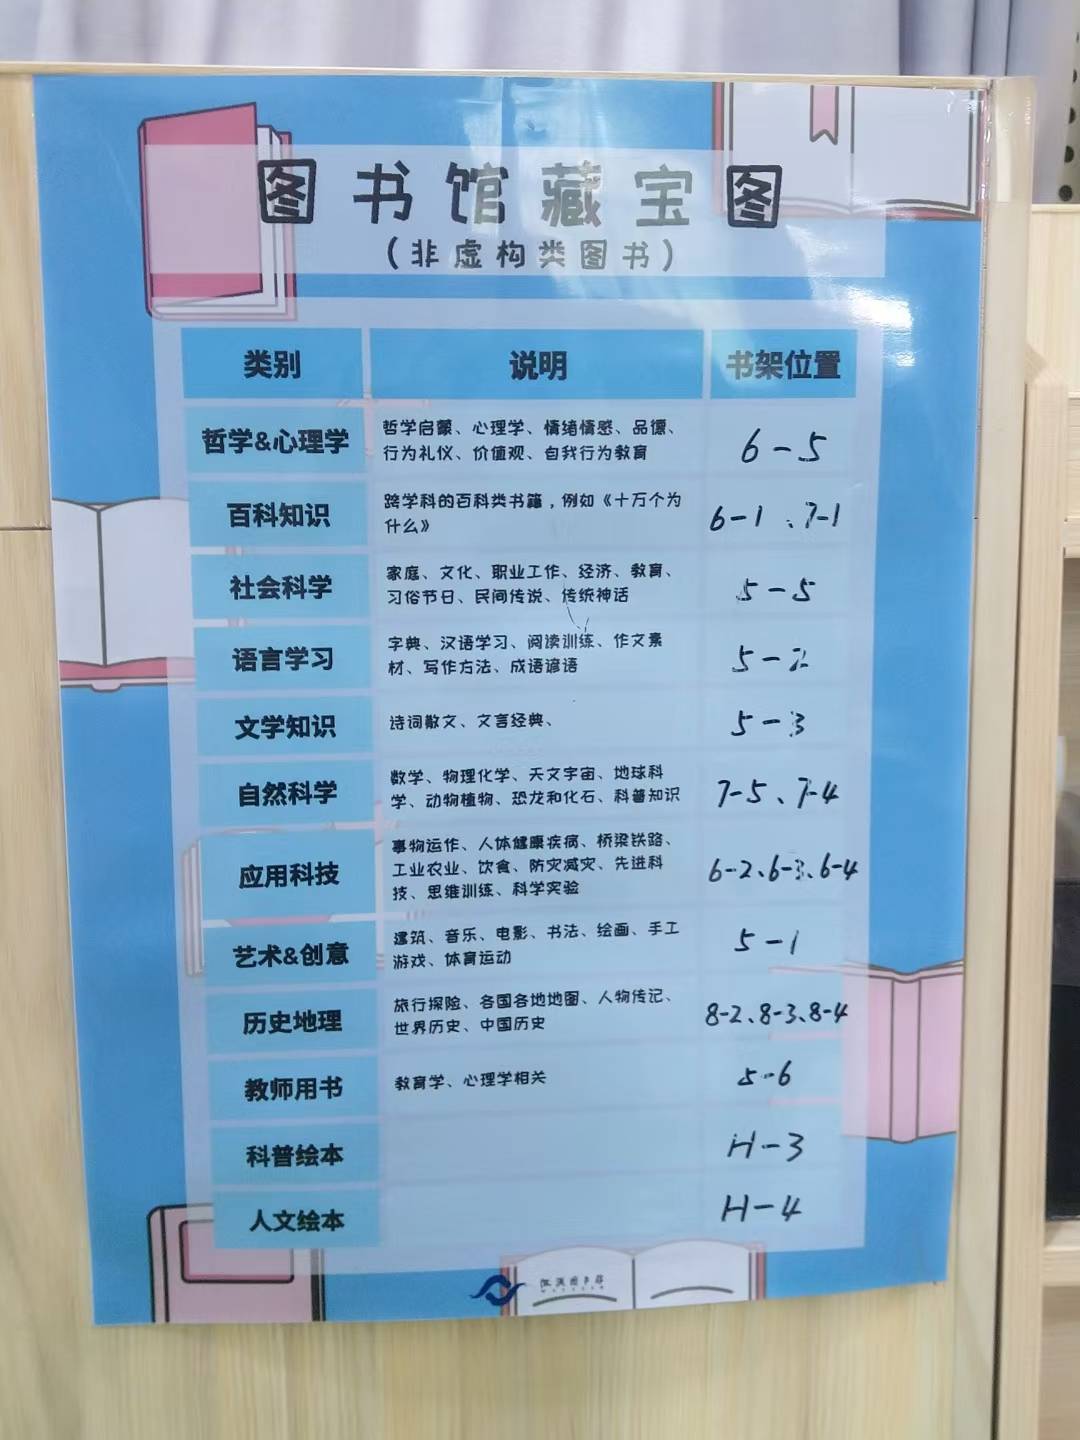 图书馆藏宝图
（非虚构类图书）
类别 说明 书架位置
哲学&心理学 哲学启蒙、心理学、情绪情感、品德、 6-5
行为礼仪、价值观、自我行为教育
百科知识 跨学科的百科类书籍，例如《十万个为 6-1、7-1
什么》
社会科学 家庭、文化、职业工作、经济、教育、 5-5
习俗节日、民间传说、传统神话
语言学习 字典、汉语学习、阅读训练、作文素 5-2
材、写作方法、成语谚语
文学知识 诗词散文、文言经典、 5-3
自然科学 数学、物理化学、天文宇宙、地球科 7-5、7-4
学、动物植物、恐龙和化石、科普知识
应用科技 事物运作、人体健康疾病、桥梁铁路、 6-2、6-3、6-4
工业农业、饮食、防灾减灾、先进科
技、思维训练、科学实验
艺术&创意 建筑、音乐、电影、书法、绘画、手工 5-1
游戏、体育运动
历史地理 旅行探险、各国各地地图、人物传记、 8-2、8-3、8-4
世界历史、中国历史
教师用书 教育学、心理学相关 5-6
科普绘本 H-3
人文绘本 H-4